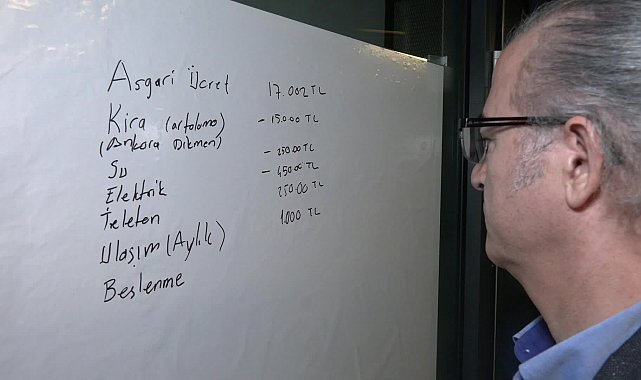 Asgari Ücret 17.002 TL
Kira (ortalama) - 15.000 TL
(Ankara Dikmen)
Su - 250.00 TL
Elektrik - 450.00 TL
Telefon 250.00 TL
Ulaşım (Aylık) 1.000 TL
Beslenme